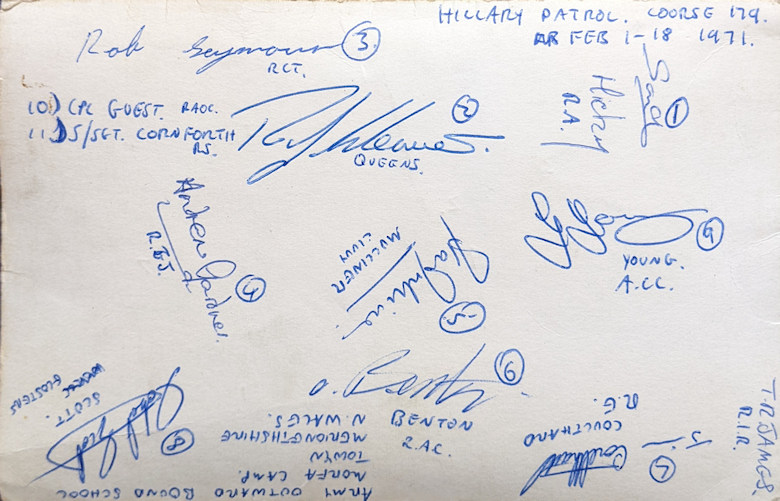 HILLARY PATROL. COURSE 179.
FEB 1-18 1971.
Rob Seymour 3.
RCT.
10) CPL GUEST. RAOC.
11) S/SGT. CORNFORTH
RS.
2
QUEENS.
1
R.A.
Andrew Gardner. 4
MULLINER
5
9
YOUNG.
A.C.C.
9
BENTON
R.A.C.
SCOTT.
GLOSTERS
8
ARMY OUTWARD BOUND SCHOOL
MORFA CAMP.
TOWYN
MERIONETHSHIRE
N. WALES.
Jim Coulthard
COULTHARD
R.E.
T.R. JAMES.
R.I.R.